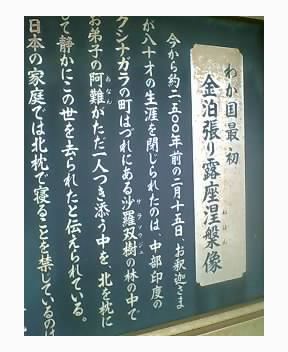 わか国最初
金泊張り露座涅槃像
ねはん
今から約二五〇〇年前の二月十五日、お釈迦さま
が八十才の生涯を閉じられたのは、中部印度の
クシナガラの町はづれにある沙羅双樹の林の中で
サラソウジュ
お弟子の阿難がただ一人つき添う中を、北を枕に
あなん
して静かにこの世を去られたと伝えられている。
日本の家庭では北枕で寝ることを禁しているのは